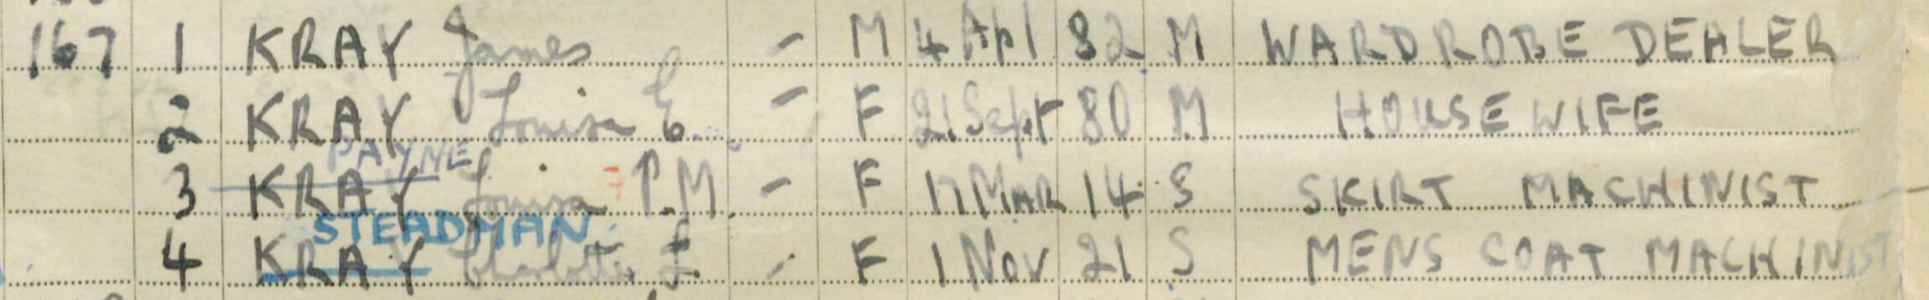 167 1 KRAY James - M 4 Apl 82 M WARDROBE DEALER
2 KRAY Louisa E - F 21 Sept 80 M HOUSEWIFE
PAYNE
3 KRAY Louisa P.M. - F 17 MAR 14 S SKIRT MACHINIST
STEADMAN
4 KRAY Charlotte E - F 1 Nov 21 S MENS COAT MACHINIST